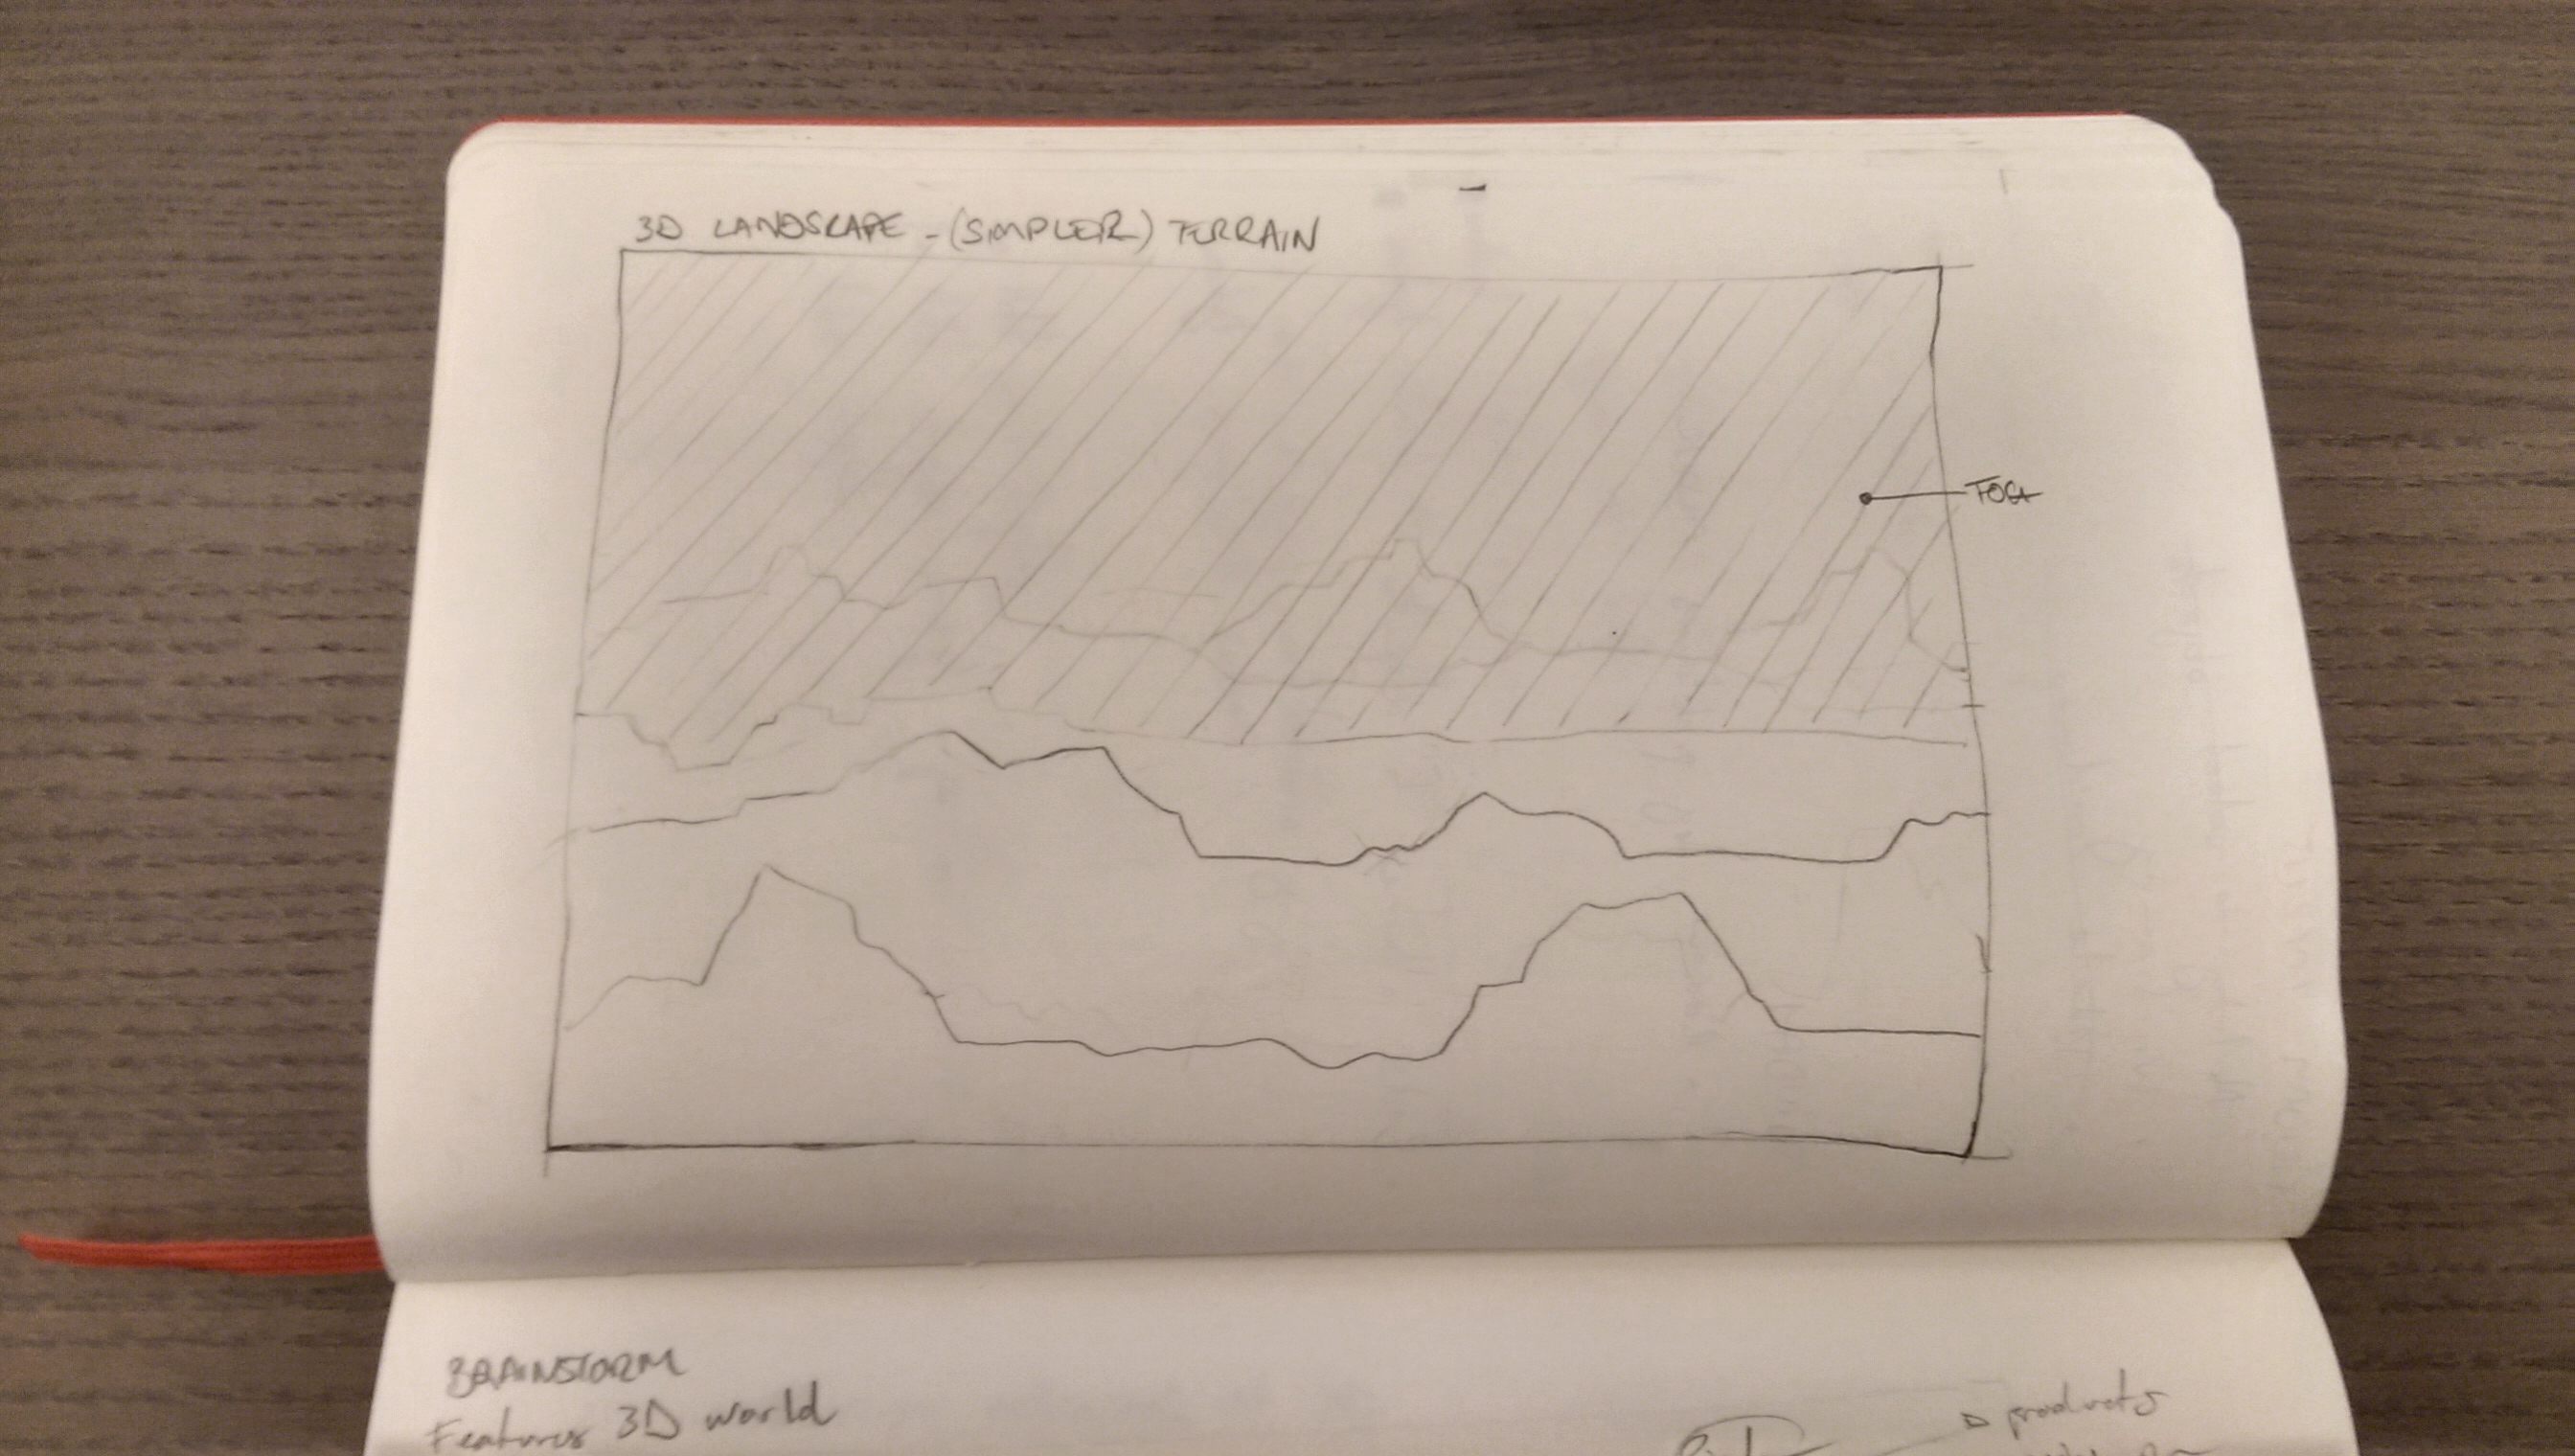 3D LANDSCAPE - (SIMPLER) TERRAIN
FOG
BRAINSTORM
Features 3D world
products